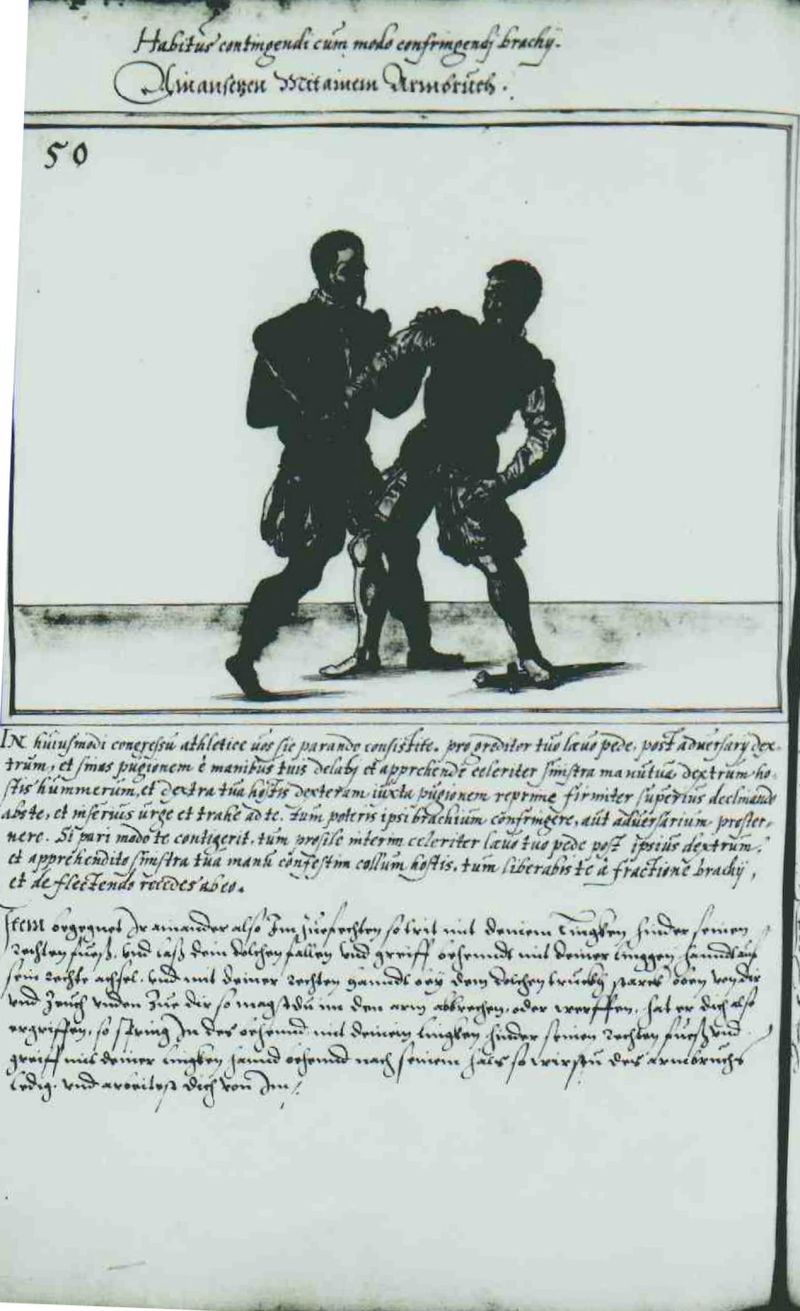 Habitus contingendi cum modo confringendj brachij.
Ain ansetzen Mit ainem Armbruch.
50
IN huiusmodi congressu athletice uos sic parando consistite. progreditor tuo læuo pede, post aduersarij dex-
trum, et sinas pugionem è manibus tuis delabj et apprehende celeriter sinistra manu tua dextrum ho-
stis hummerum, et dextra tua hostis dexteram iuxta pugionem reprime firmiter superius declinando
abs te, et inferius urge et trahe ad te. tum poteris ipsi brachium confringere, aut aduersarium proster-
nere. Si pari modo te contigerit, tum prosile interim celeriter læuo tuo pede post ipsius dextrum,
et apprehendito sinistra tua manu confestim collum hostis, tum liberabis te à fractione brachij,
et deflectendo recedes ab eo.
Item begegnet Ir ainander also Im zuefechten so trit mit deinem Lingken hinder seinen
rechten fuesß, vnd lasß dein dolchen fallen vnd greiff behendt mit deiner linggen hanndt auf
sein rechte achsel, vnd mit deiner rechten hanndt bey dem dolchen truckh starck oben von dir
vnd zeuch vnden zue dir so magstu im den arm abbrechen, oder werffen, hat er dich also
ergriffen, so spring In des behend mit deinem lingken hinder seinen rechten fuesß vnd
greiff mit deiner lingken hannd behennd nach seinem hals so wirstu des armbruchs
ledig, vnd arbeitest dich von Im